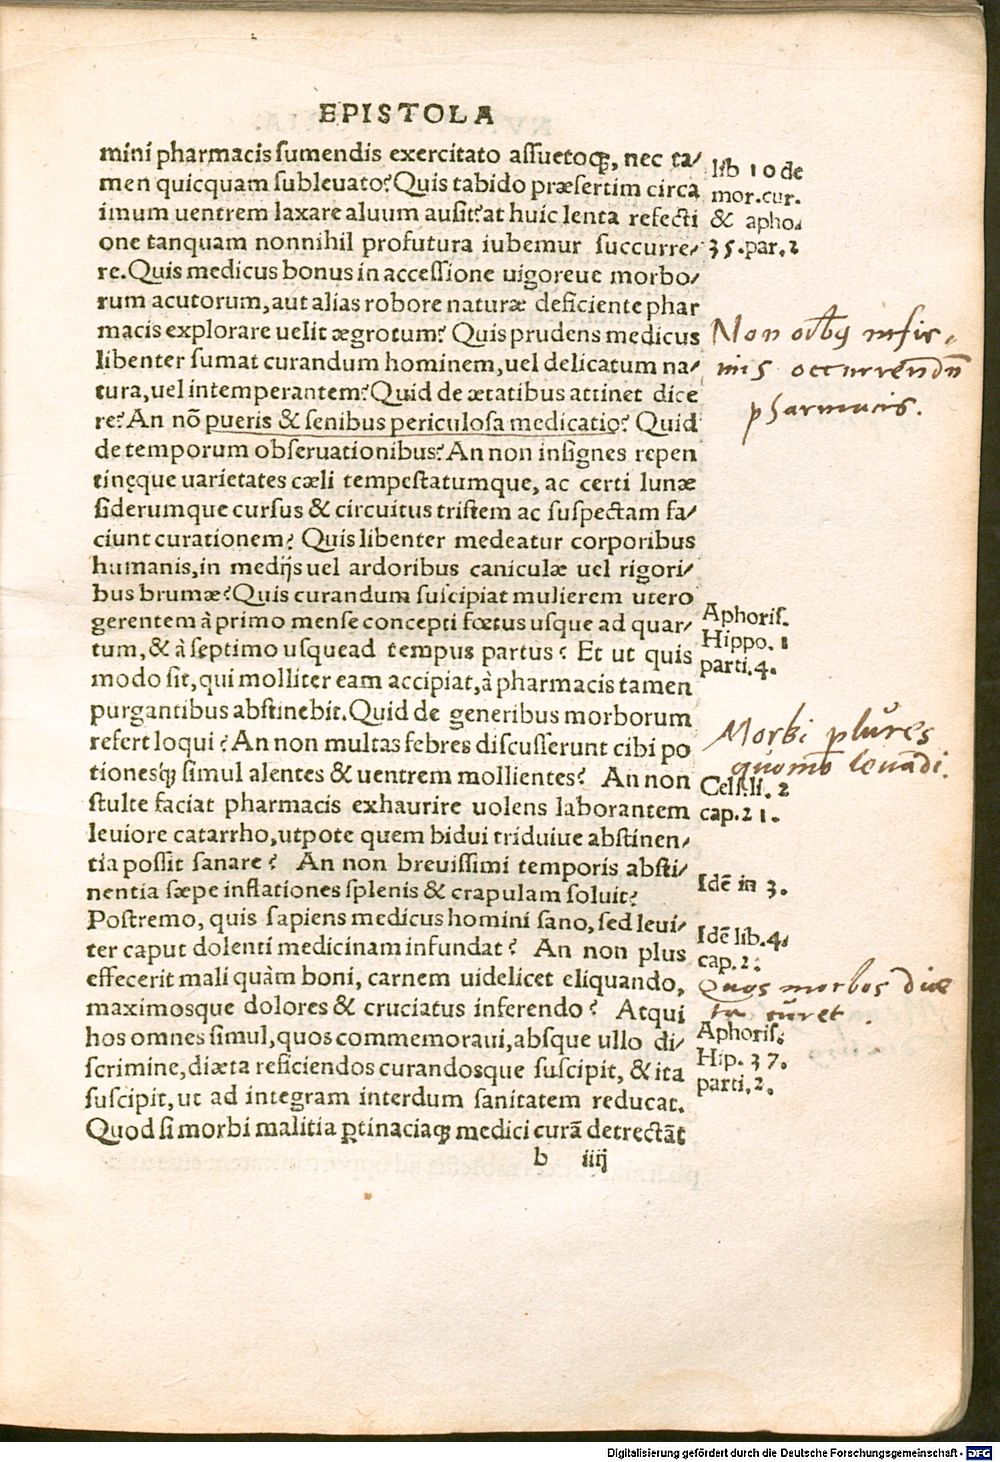 EPISTOLA
mini pharmacis sumendis exercitato assuetoq;, nec ta/
men quicquam subleuato? Quis tabido præsertim circa
imum uentrem laxare aluum ausit? at huic lenta refecti
one tanquam nonnihil profutura iubemur succurre/
re. Quis medicus bonus in accessione uigoreue morbo/
rum acutorum, aut alias robore naturæ deficiente phar
macis explorare uelit ægrotum? Quis prudens medicus
libenter sumat curandum hominem, uel delicatum na/
tura, uel intemperantem? Quid de ætatibus attinet dice
re? An nõ pueris & senibus periculosa medicatio? Quid
de temporum obseruationibus? An non insignes repen
tinęque uarietates cæli tempestatumque, ac certi lunæ
siderumque cursus & circuitus tristem ac suspectam fa/
ciunt curationem? Quis libenter medeatur corporibus
humanis, in medijs uel ardoribus caniculæ uel rigori/
bus brumæ? Quis curandum suscipiat mulierem utero
gerentem à primo mense concepti fœtus usque ad quar/
tum, & à septimo usquead tempus partus? Et ut quis
modo sit, qui molliter eam accipiat, à pharmacis tamen
purgantibus abstinebit. Quid de generibus morborum
refert loqui? An non multas febres discusserunt cibi po
tionesq; simul alentes & uentrem mollientes? An non
stulte faciat pharmacis exhaurire uolens laborantem
leuiore catarrho, utpote quem bidui triduiue abstinen/
tia possit sanare? An non breuissimi temporis absti/
nentia sæpe inflationes splenis & crapulam soluit?
Postremo, quis sapiens medicus homini sano, sed leui/
ter caput dolenti medicinam infundat? An non plus
effecerit mali quàm boni, carnem uidelicet eliquando,
maximosque dolores & cruciatus inferendo? Atqui
hos omnes simul, quos commemoraui, absque ullo di/
scrimine, diæta reficiendos curandosque suscipit, & ita
suscipit, ut ad integram interdum sanitatem reducat.
Quod si morbi malitia ꝑtinaciaq; medici curã detrectãt
b iiij
lib 10 de
mor. cur.
& apho.
35. par. 2
Non oĩbus infir-
mis occurrendũ
pharmacis.
Aphoris.
Hippo. 1
parti. 4.
Morbi plures
quomõ leuãdi.
Cels. li. 2
cap. 21.
Idẽ in 3.
Idẽ lib. 4.
cap. 2:
Quos morbos diæ
ta curet.
Aphoris:
Hip. 37.
parti. 2.
Digitalisierung gefördert durch die Deutsche Forschungsgemeinschaft - DFG